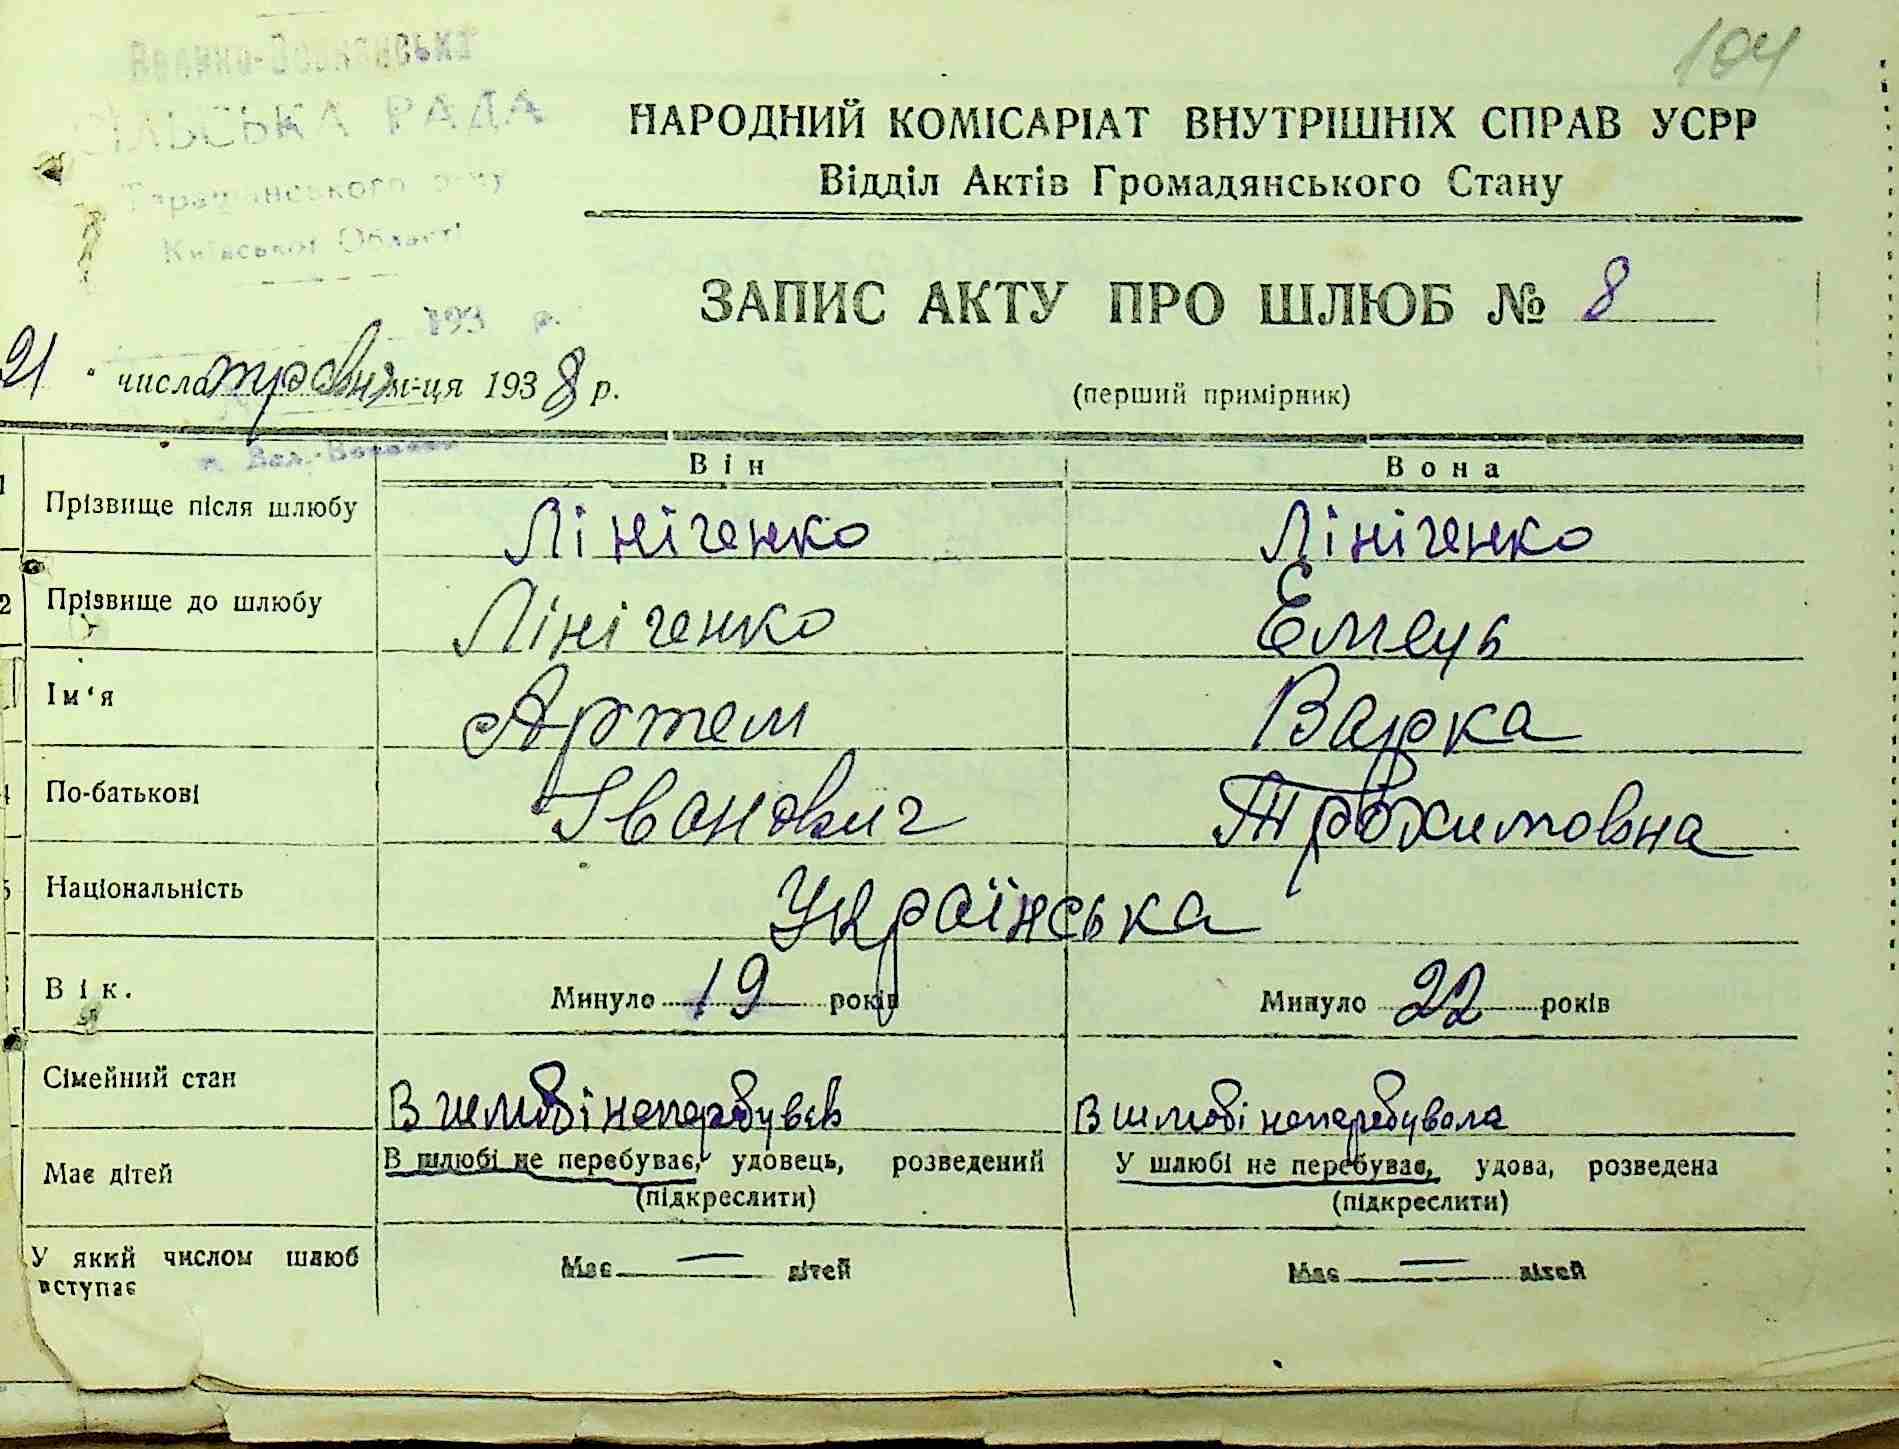 104
Велико-Вовнянська
СІЛЬСЬКА РАДА
Таращанського р-ну
Київської Області
193 р.
НАРОДНИЙ КОМІСАРІАТ ВНУТРІШНІХ СПРАВ УСРР
Відділ Актів Громадянського Стану
ЗАПИС АКТУ ПРО ШЛЮБ № 8
21 числа травня м-ця 1938 р.
(перший примірник)
Він Вона
1 Прізвище після шлюбу Лініченко Лініченко
2 Прізвище до шлюбу Лініченко Ємець
Ім'я Артем Варка
4 По-батькові Іванович Трохимовна
5 Національність Українська
Вік. Минуло 19 років Минуло 22 років
Сімейний стан В шлюбі неперебував В шлюбі неперебувала
Має дітей В шлюбі не перебуває, удовець, розведений У шлюбі не перебуває, удова, розведена
(підкреслити) (підкреслити)
У який числом шлюб вступає Має — дітей Має — дітей